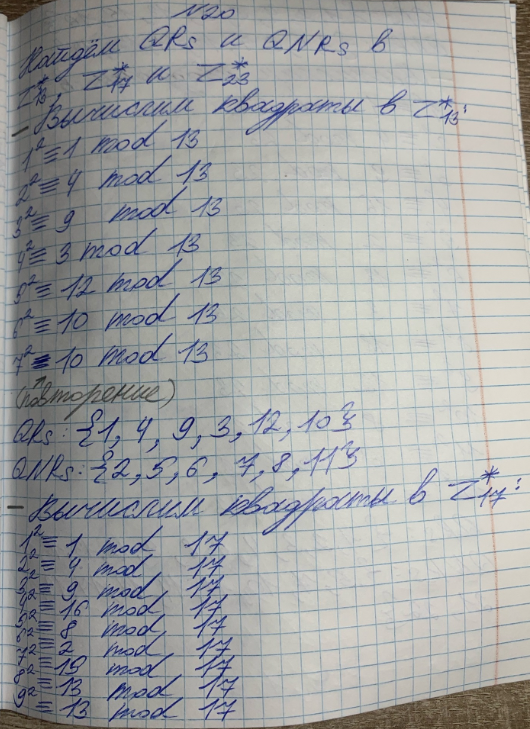 N20
Найдём QRs и QNRs в
Z*13, Z*17 и Z*23
– Вычислим квадраты в Z*13:
1² ≡ 1 mod 13
2² ≡ 4 mod 13
3² ≡ 9 mod 13
4² ≡ 3 mod 13
5² ≡ 12 mod 13
6² ≡ 10 mod 13
7² ≡ 10 mod 13
(повторение)
QRs: {1, 4, 9, 3, 12, 10}
QNRs: {2, 5, 6, 7, 8, 11}
– Вычислим квадраты в Z*17:
1² ≡ 1 mod 17
2² ≡ 4 mod 17
3² ≡ 9 mod 17
4² ≡ 16 mod 17
5² ≡ 8 mod 17
6² ≡ 2 mod 17
7² ≡ 15 mod 17
8² ≡ 13 mod 17
9² ≡ 13 mod 17